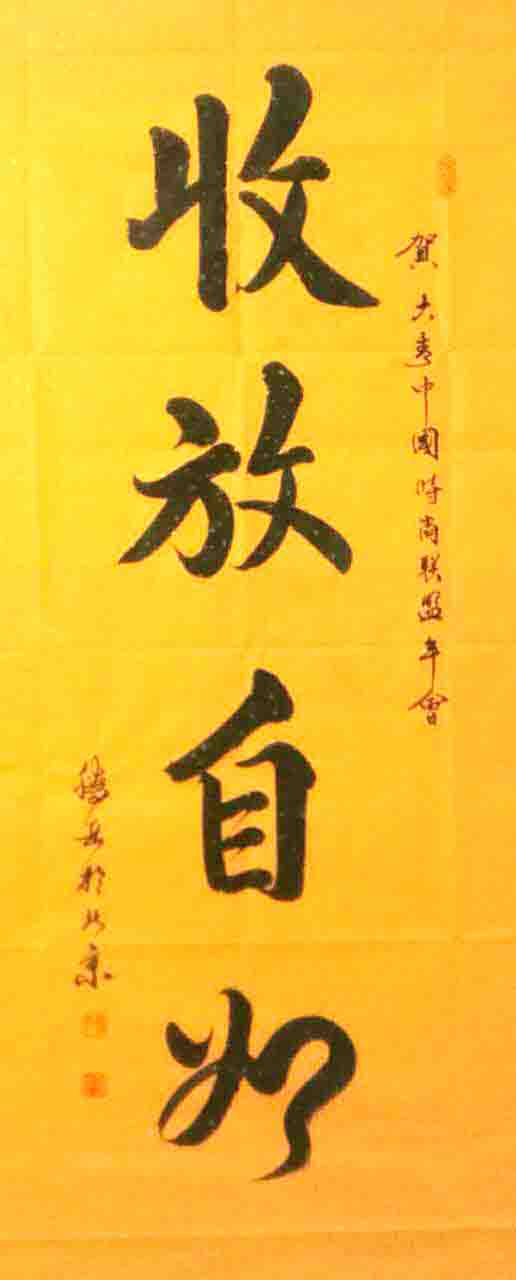 賀大秀中國時尚联盟年會
收放自如
於北京